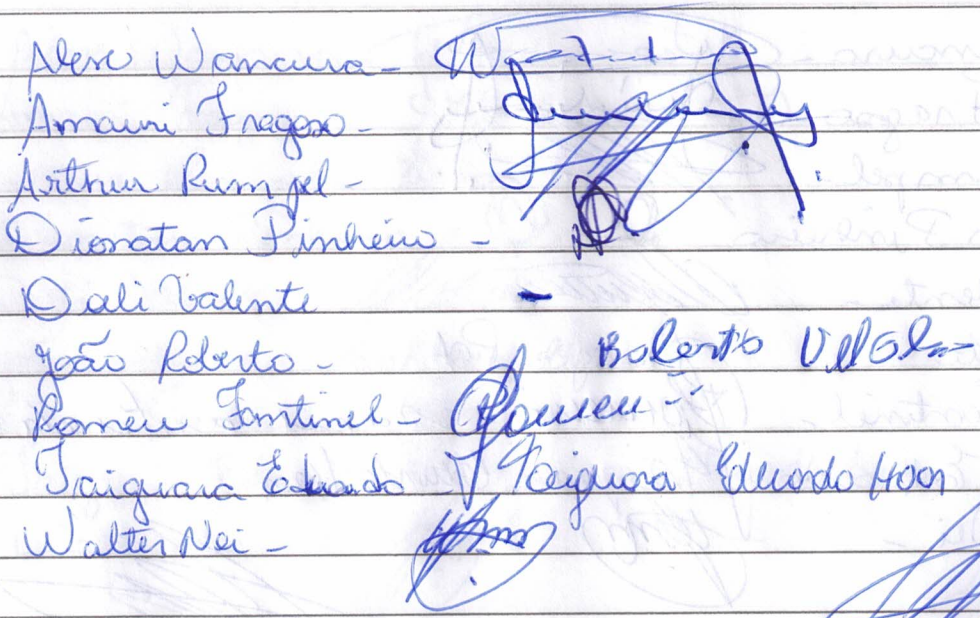 Alex Wancura -
Amauri Fragoso -
Arthur Rumpel -
Dionatan Pinheiro -
Dali Valente -
João Roberto - Roberto
Romeu Fantinel - Romeu
Taiguara Eduardo Taiguara Eduardo Hoor
Walter Nei -